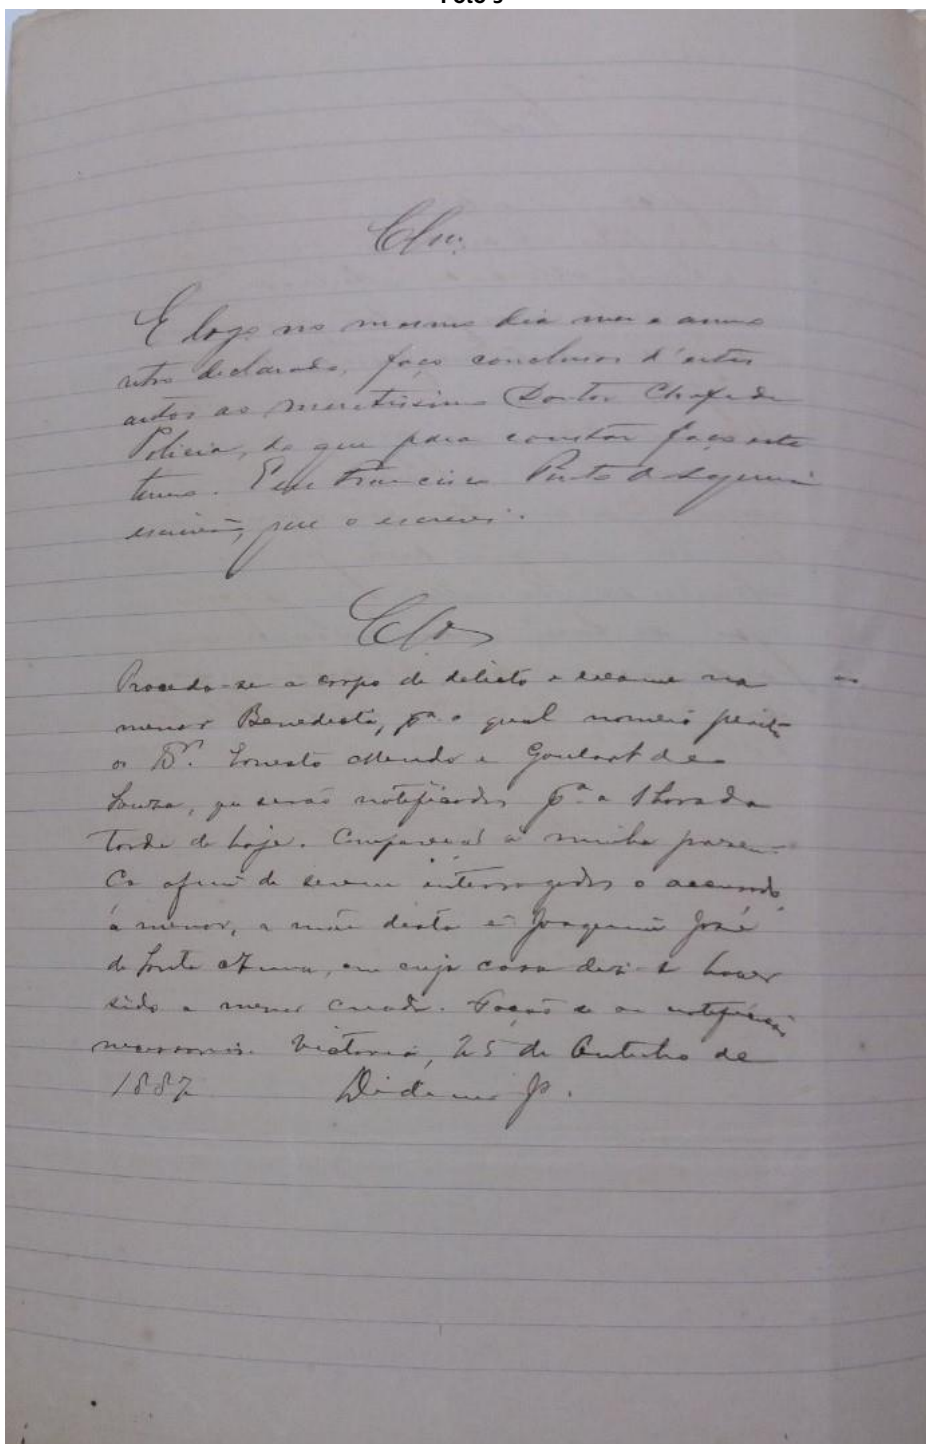 Clu.
E logo no mesmo dia mez e anno
retro declarado, faço conclusos d'estes
autos ao meretissimo Doutor Chefe de
Policia, do que para constar faço este
termo. Eu Francisco Pinto de
escrivão, que o escrevi.
Clos
Proceda-se a corpo de delicto e exame na
menor Benedicta, pª o qual nomeio perito
os Drs. Ernesto Mendo e Goulart de
Souza, que serão notificados pª a 1 hora da
tarde de hoje. Compareçãs á minha presen-
ça afim de serem interrogados o accusado
a menor, a mãe desta e Joaquim José
de em cuja casa diz-se haver
sido a menor creada. Fação-se as notificações
necessarias. Victoria, 25 de Outubro de
1887 Didimo Jr.